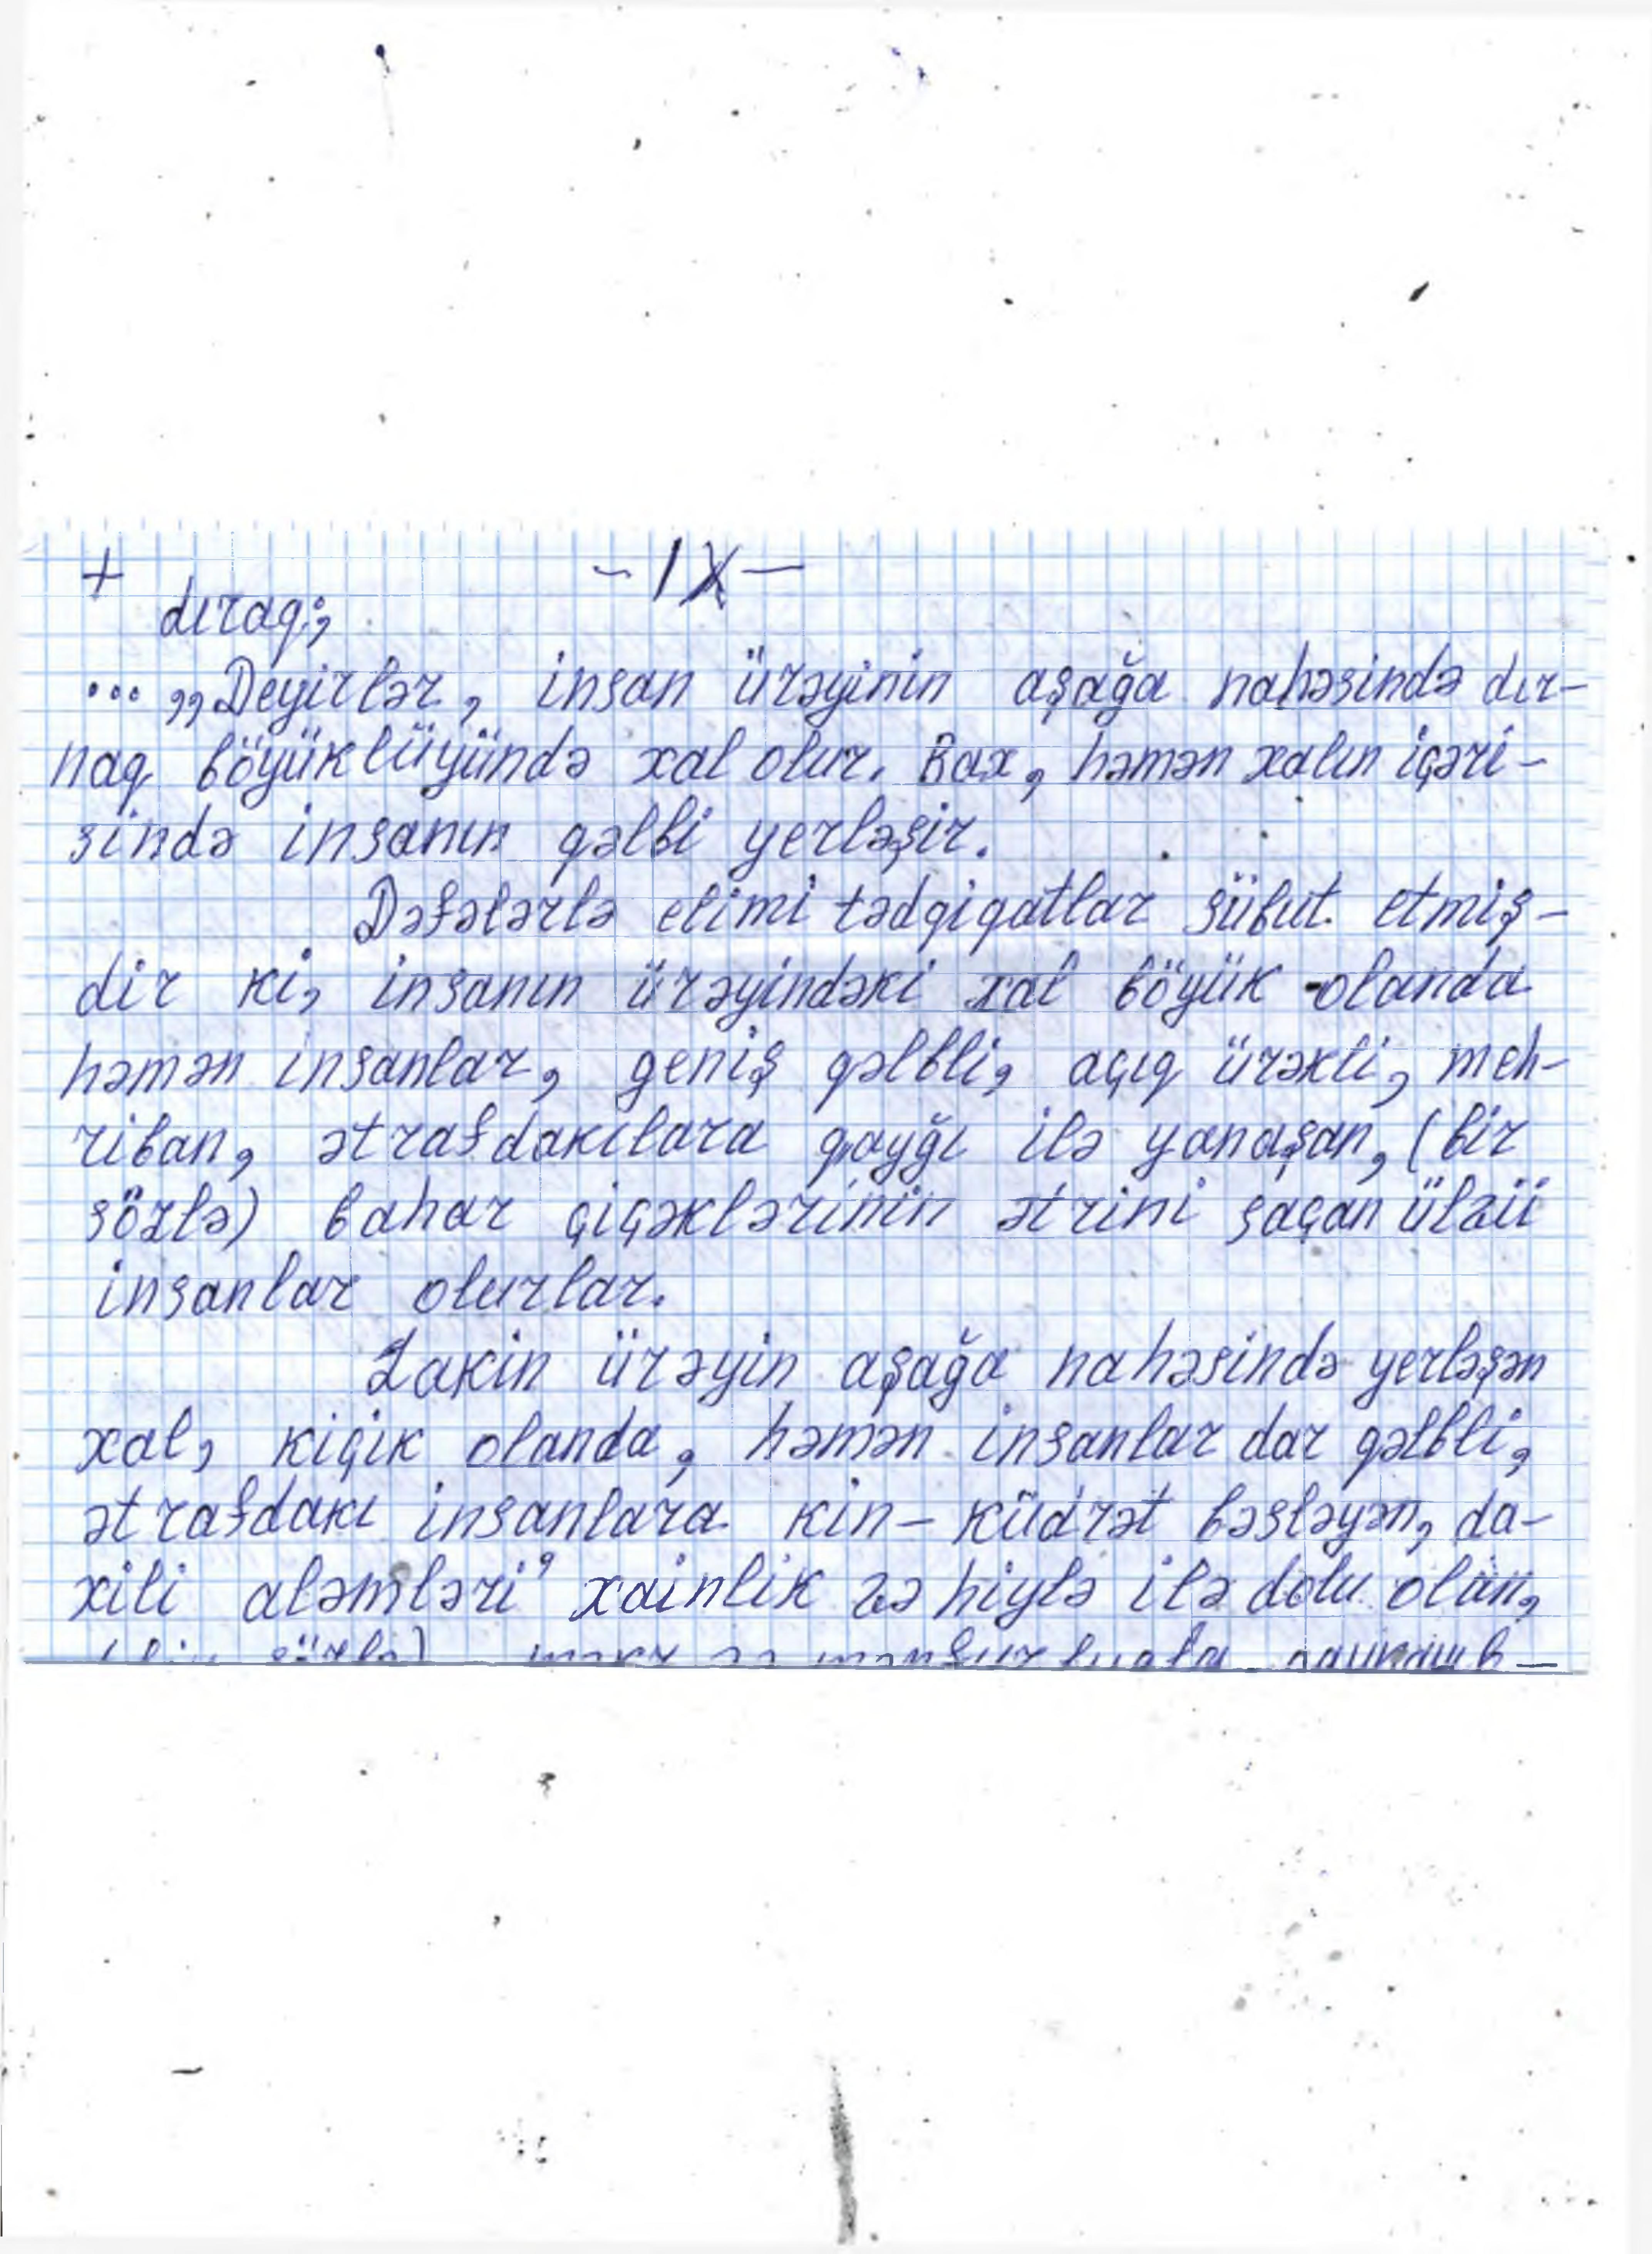 + -IX-
dıraq;,
... ,,Deyirlər, insan ürəyinin aşağa nahəsində dır-
naq böyüklüyündə xal olur. Bax, həmən xalın içəri-
sində insanın qəlbi yerləşir.
Dəfələrlə elimi tədqiqatlar sübut etmiş-
dir ki, insanın ürəyindəki xal böyük olanda
həmən insanlar, geniş qəlbli, açıq ürəkli, meh-
riban, ətrafdakılara qayğı ilə yanaşan, (bir
sözlə) bahar çiçəklərinin ətrini saçan ülvü
insanlar olurlar.
Lakin ürəyin aşağa nahəsində yerləşən
xal, kiçik olanda, həmən insanlar dar qəlbli,
ətrafdakı insanlara kin-küdrət bəsləyən, da-
xili aləmləri, xainlik və hiylə ilə dolu olan,
(bir sözlə)